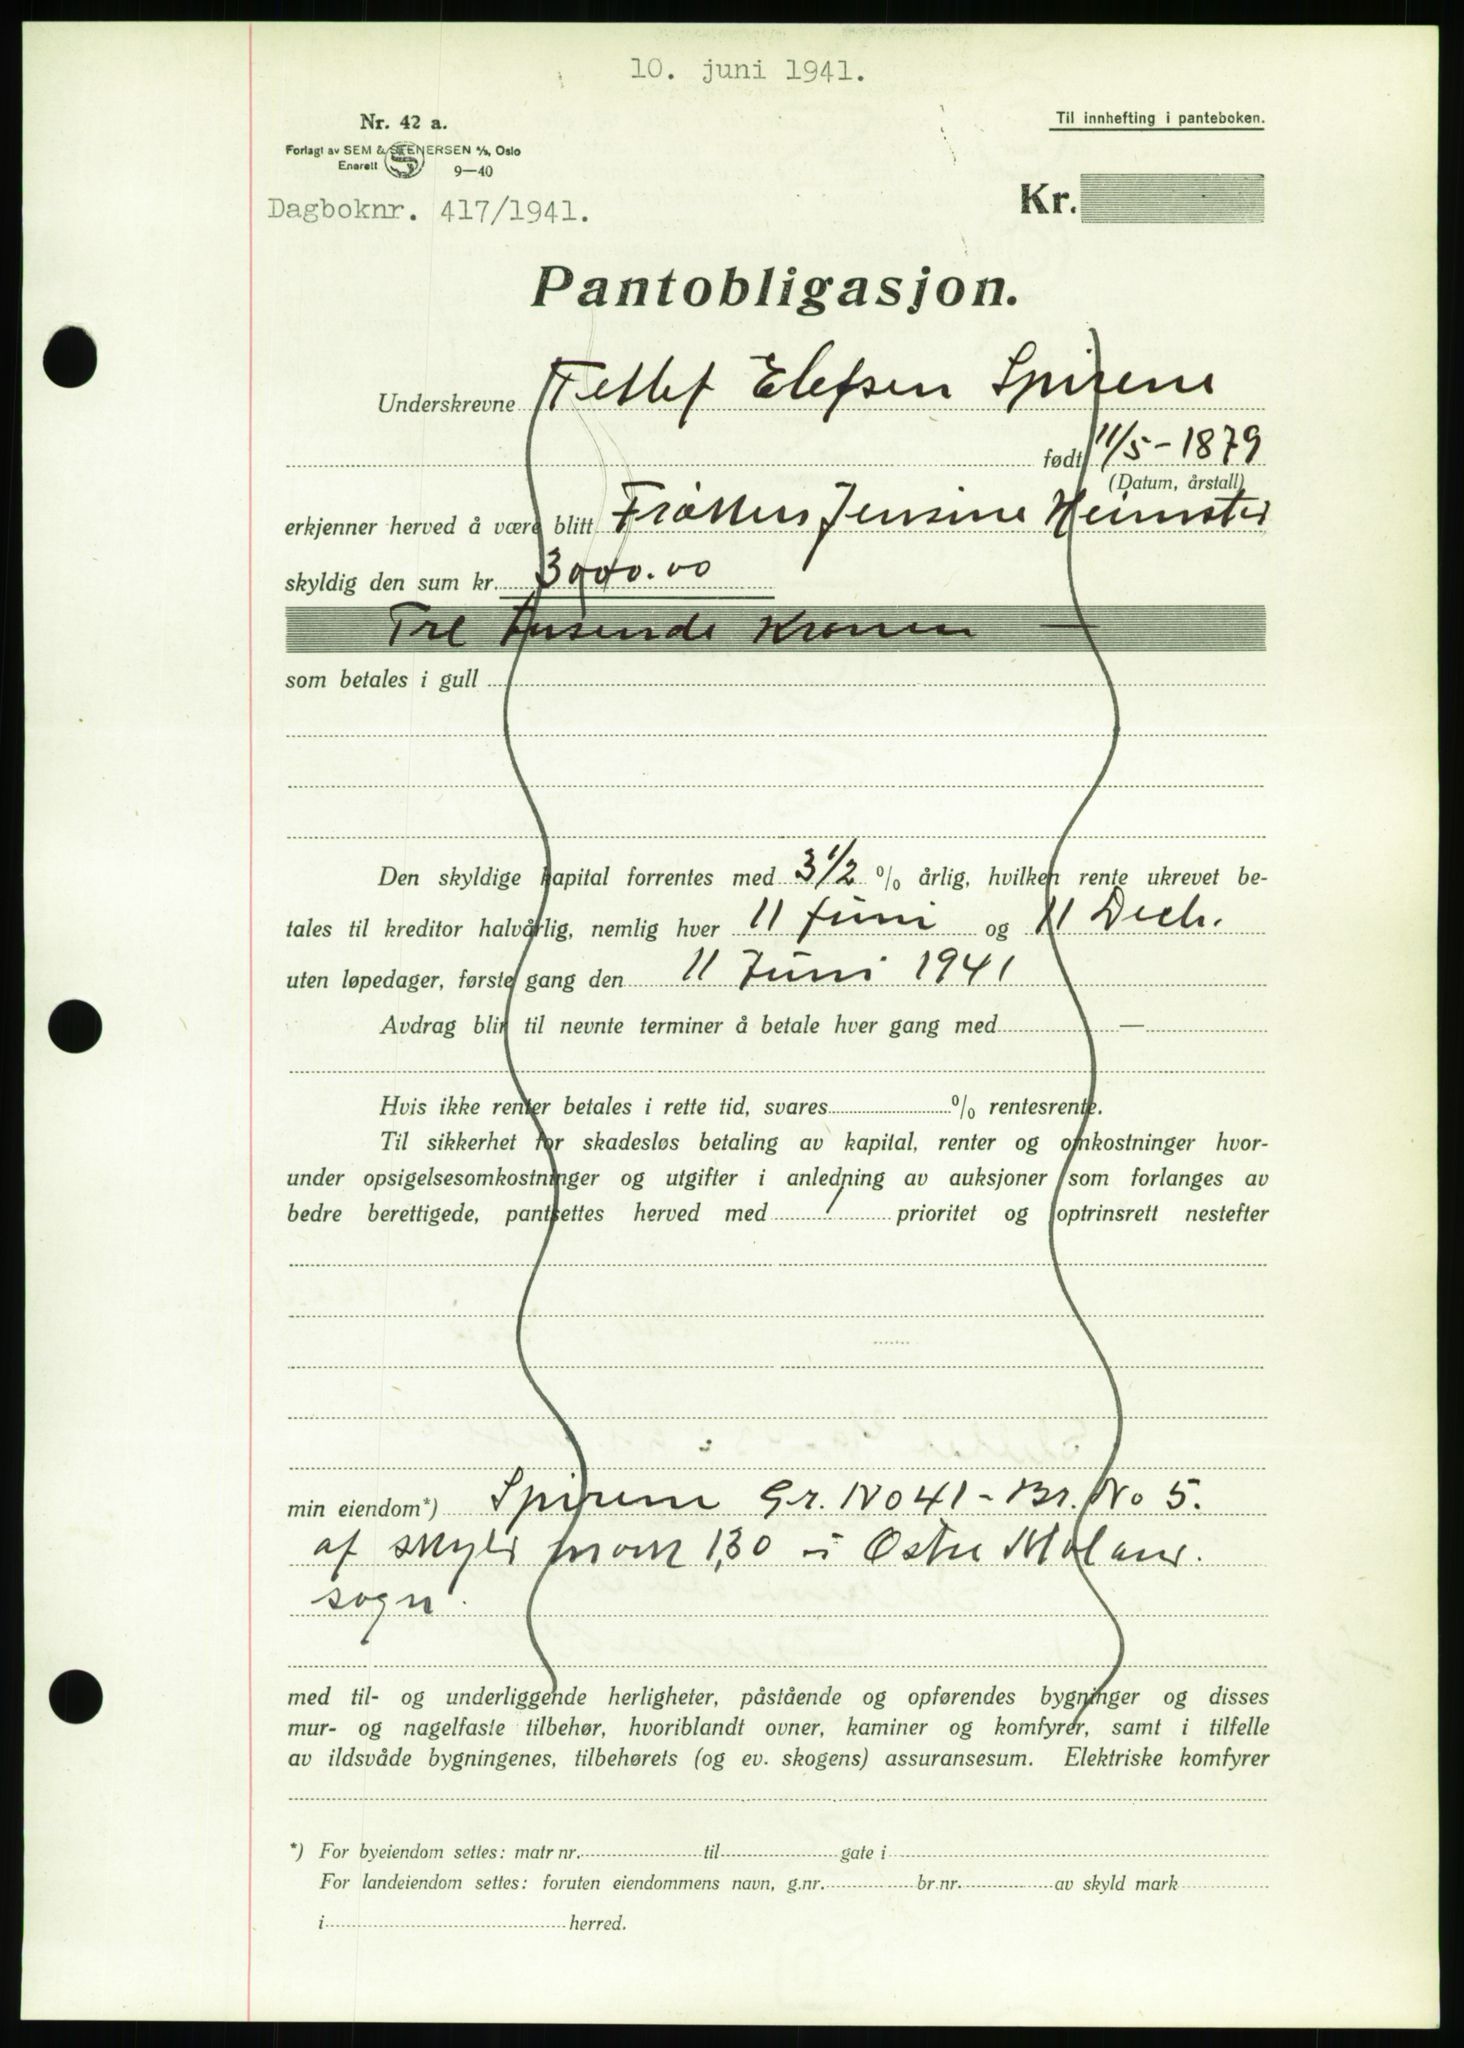 10. juni 1941.
Nr. 42 a.
Til innhefting i panteboken.
Forlagt av SEM & STENERSEN A/S, Oslo
Enerett 9—40
Dagboknr. 417/1941.
Kr.
Pantobligasjon.
Underskrevne Tellef Elefsen Spirene
født 11/5-1879
(Datum, årstall)
erkjenner herved å være blitt Frøken Jensine Heimster
skyldig den sum kr. 3000.00
Tre tusende Kroner —
som betales i gull
Den skyldige kapital forrentes med 3 1/2 % årlig, hvilken rente ukrevet be-
tales til kreditor halvårlig, nemlig hver 11 Juni og 11 Dech.
uten løpedager, første gang den 11 Juni 1941
Avdrag blir til nevnte terminer å betale hver gang med —
Hvis ikke renter betales i rette tid, svares % rentesrente.
Til sikkerhet for skadesløs betaling av kapital, renter og omkostninger hvor-
under opsigelsesomkostninger og utgifter i anledning av auksjoner som forlanges av
bedre berettigede, pantsettes herved med 1 prioritet og optrinsrett nestefter
min eiendom*) Spirene Gr. No 41 - Br. No 5.
af skyld mark 1,30 i Østre Moland.
sogn.
med til- og underliggende herligheter, påstående og opførendes bygninger og disses
mur- og nagelfaste tilbehør, hvoriblandt ovner, kaminer og komfyrer, samt i tilfelle
av ildsvåde bygningenes, tilbehørets (og ev. skogens) assuransesum. Elektriske komfyrer
*) For byeiendom settes: matr nr. til gate i
For landeiendom settes: foruten eiendommens navn, g.nr. br.nr. av skyld mark
i herred.